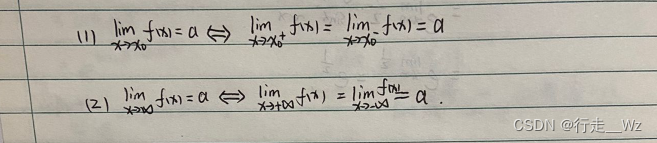 (1) lim x→x₀ f(x) = a ⇔ lim x→x₀⁺ f(x) = lim x→x₀⁻ f(x) = a
(2) lim x→∞ f(x) = a ⇔ lim x→+∞ f(x) = lim x→-∞ f(x) = a.
CSDN @行走__Wz